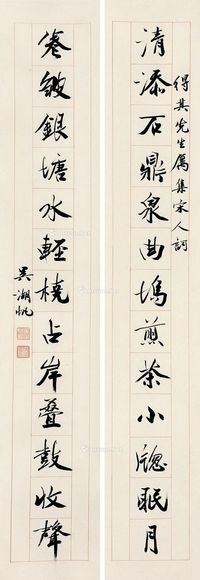 清添石鼎泉曲塢煎茶小牕眠月
得其先生屬集宋人詞
寒皺銀塘水輕橈占岸疊鼓收聲
吳湖帆